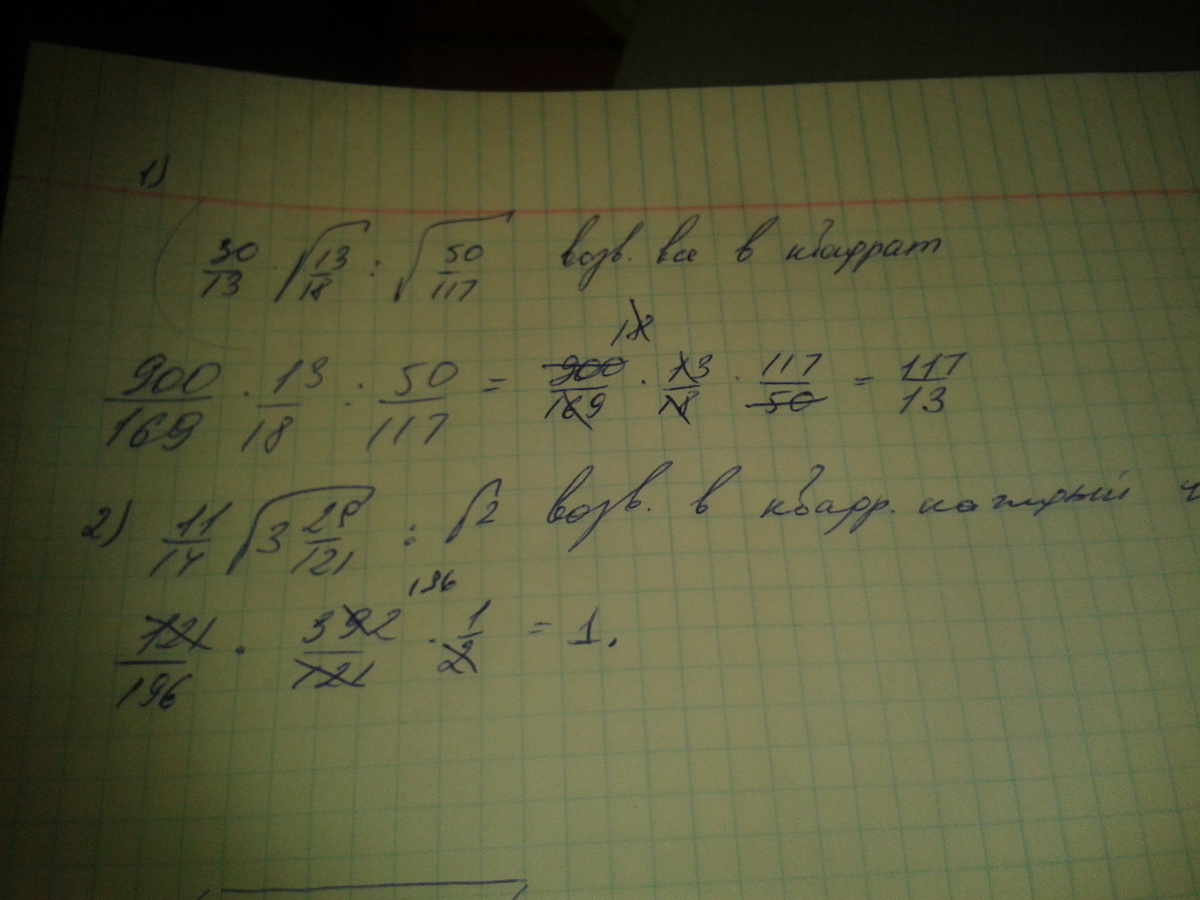 1)
30/13 · √13/18 : √50/117 возв. все в квадрат
900/169 · 13/18 : 50/117 = 900/169 · 13/18 · 117/50 = 117/13
18
2) 11/14 √3 29/121 : √2 возв. в квадр. каждый
121/196 · 392/121 · 1/2 = 1.
196